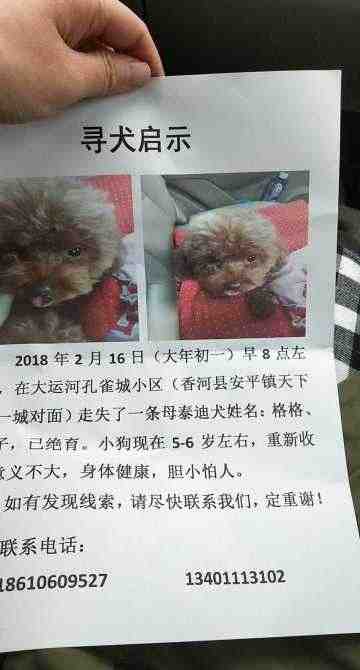 寻犬启示
2018 年 2 月 16 日（大年初一）早 8 点左
，在大运河孔雀城小区（香河县安平镇天下
一城对面）走失了一条母泰迪犬姓名：格格、
子，已绝育。小狗现在 5-6 岁左右，重新收
意义不大，身体健康，胆小怕人。
如有发现线索，请尽快联系我们，定重谢！
联系电话：
18610609527 13401113102